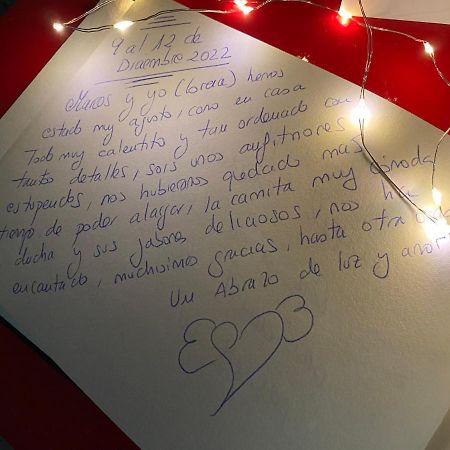 9 al 12 de
Diciembre 2022
Marcos y yo (Lorena) hemos
estado muy agusto, como en casa
Todo muy calentito y tan ordenado con
tanto detalles, sois unos anfitriones
estupendos, nos hubieramos quedado mas
tiempo de poder alargar, la camita muy cómoda
ducha y sus jabones deliciosos, nos ha
encantado, muchisimas gracias, hasta otra
Un Abrazo de luz y amor